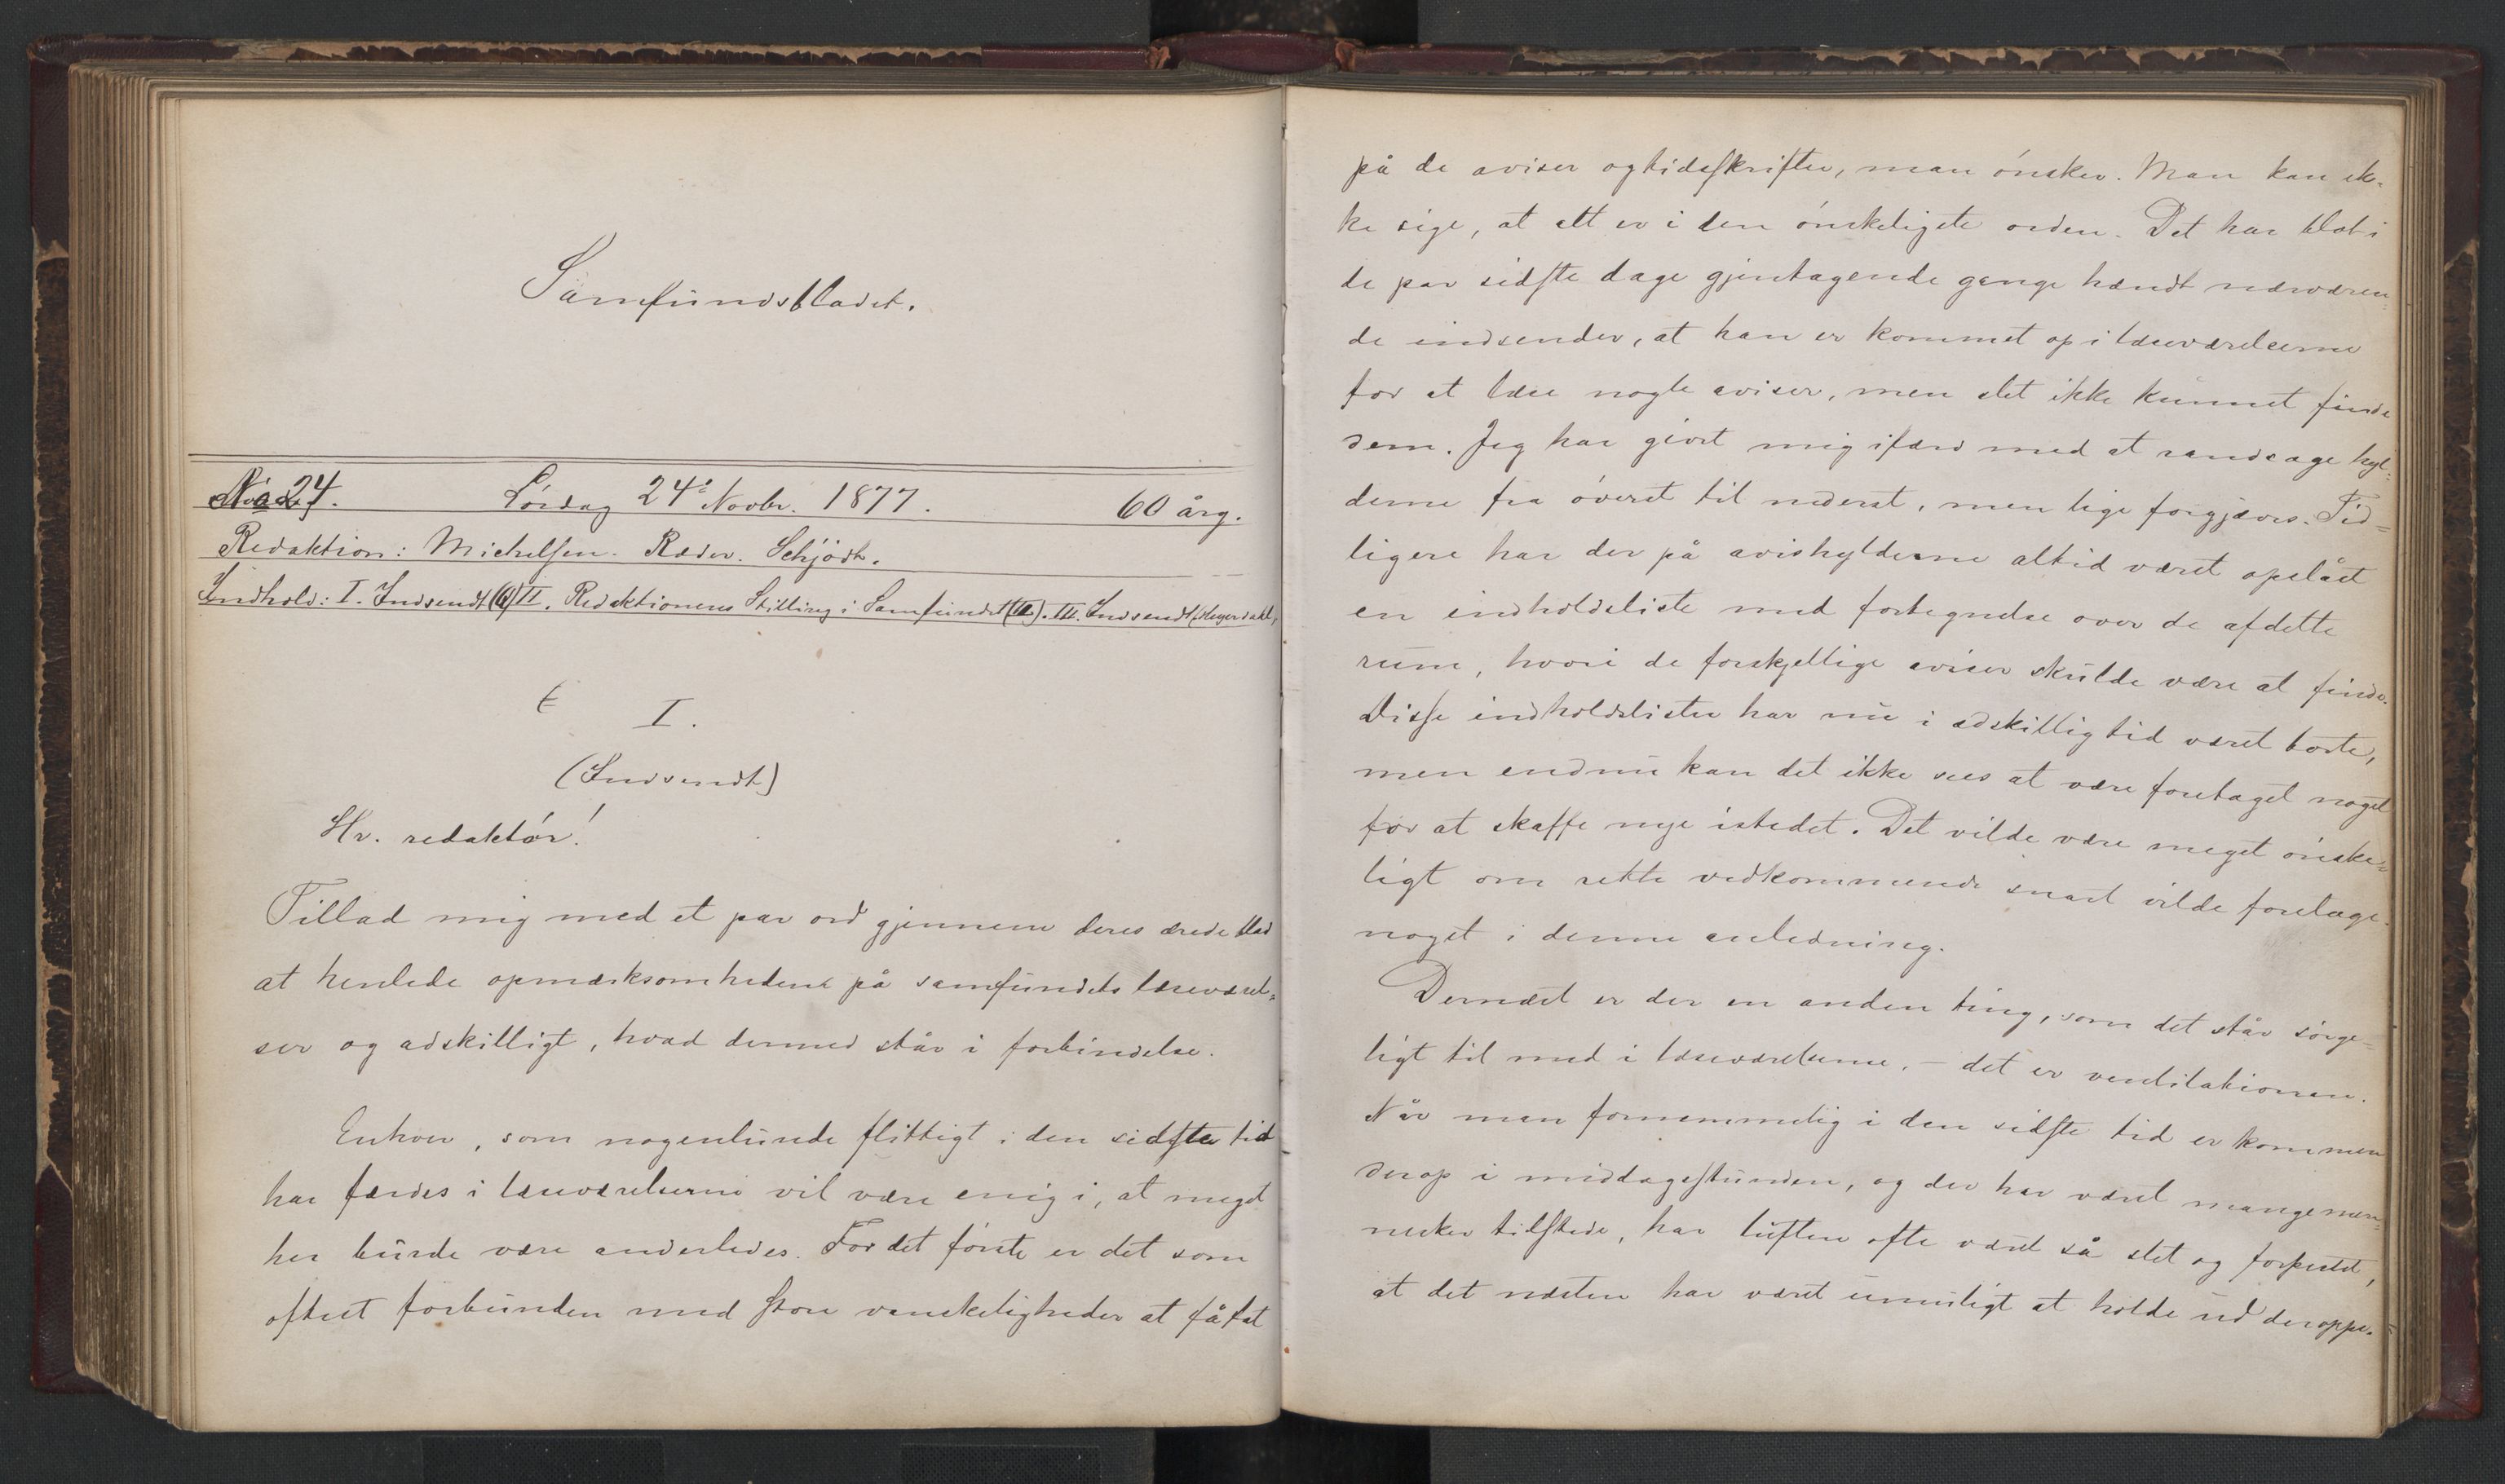 Samfundsbladet.
No 24. Lórdag 24de Novbr. 1877. 60 årg.
Redaktion: Michelsen. Ræder. Schjödt.
Indhold: I. Indsendt II. Redaktionens Stilling i Samfundet. III. Indsendt (Heyerdahl)
I.
(Indsendt)
Hr. redaktór!
Tillad mig med et par ord gjennem deres ærede blad
at henlede opmærksomheden på samfundets læseværel-
ser og adskilligt, hvad dermed står i forbindelse.
Enhver, som nogenlunde flittigt i den sidste tid
har færdes i læseværelserne vil være enig i, at meget
her burde være anderledes. For det fórste er det som
oftest forbunden med store vanskeligheder at få fat
på de aviser og tidsskrifter, man ónsker. Man kan ik-
ke sige, at alt er i den ónskeligste orden. Det har blot i
de par sidste dage gjentagende gange hændt nærværen-
de indsender, at han er kommet op i læseværelserne
for at læse nogle aviser, men slet ikke kunnet finde
dem. Jeg har gjort mig ifærd med at randsage hyl-
derne fra óverst til nederst, men lige forgjæves. Tid-
ligere har der på avishylderne altid været opslået
en indholdsliste med fortegnelse over de afdelte
rum, hvori de forskjellige aviser skulde være at finde.
Disse indholdslister har nu i adskillig tid været borte,
men endnu kan det ikke sees at være foretaget noget
for at skaffe nye istedet. Det vilde være meget ónske-
ligt om rette vedkommende snart vilde foretage
noget i denne anledning.
Dernæst er der en anden ting, som det står sórge-
ligt til med i læseværelserne, – det er ventilationen.
Når man fornemmelig i den sidste tid er kommen
derop i middagsstunden, og der har været mange men-
nesker tilstede, har luften ofte været så slet og forpestet,
at det næsten har været umuligt at holde ud deroppe.